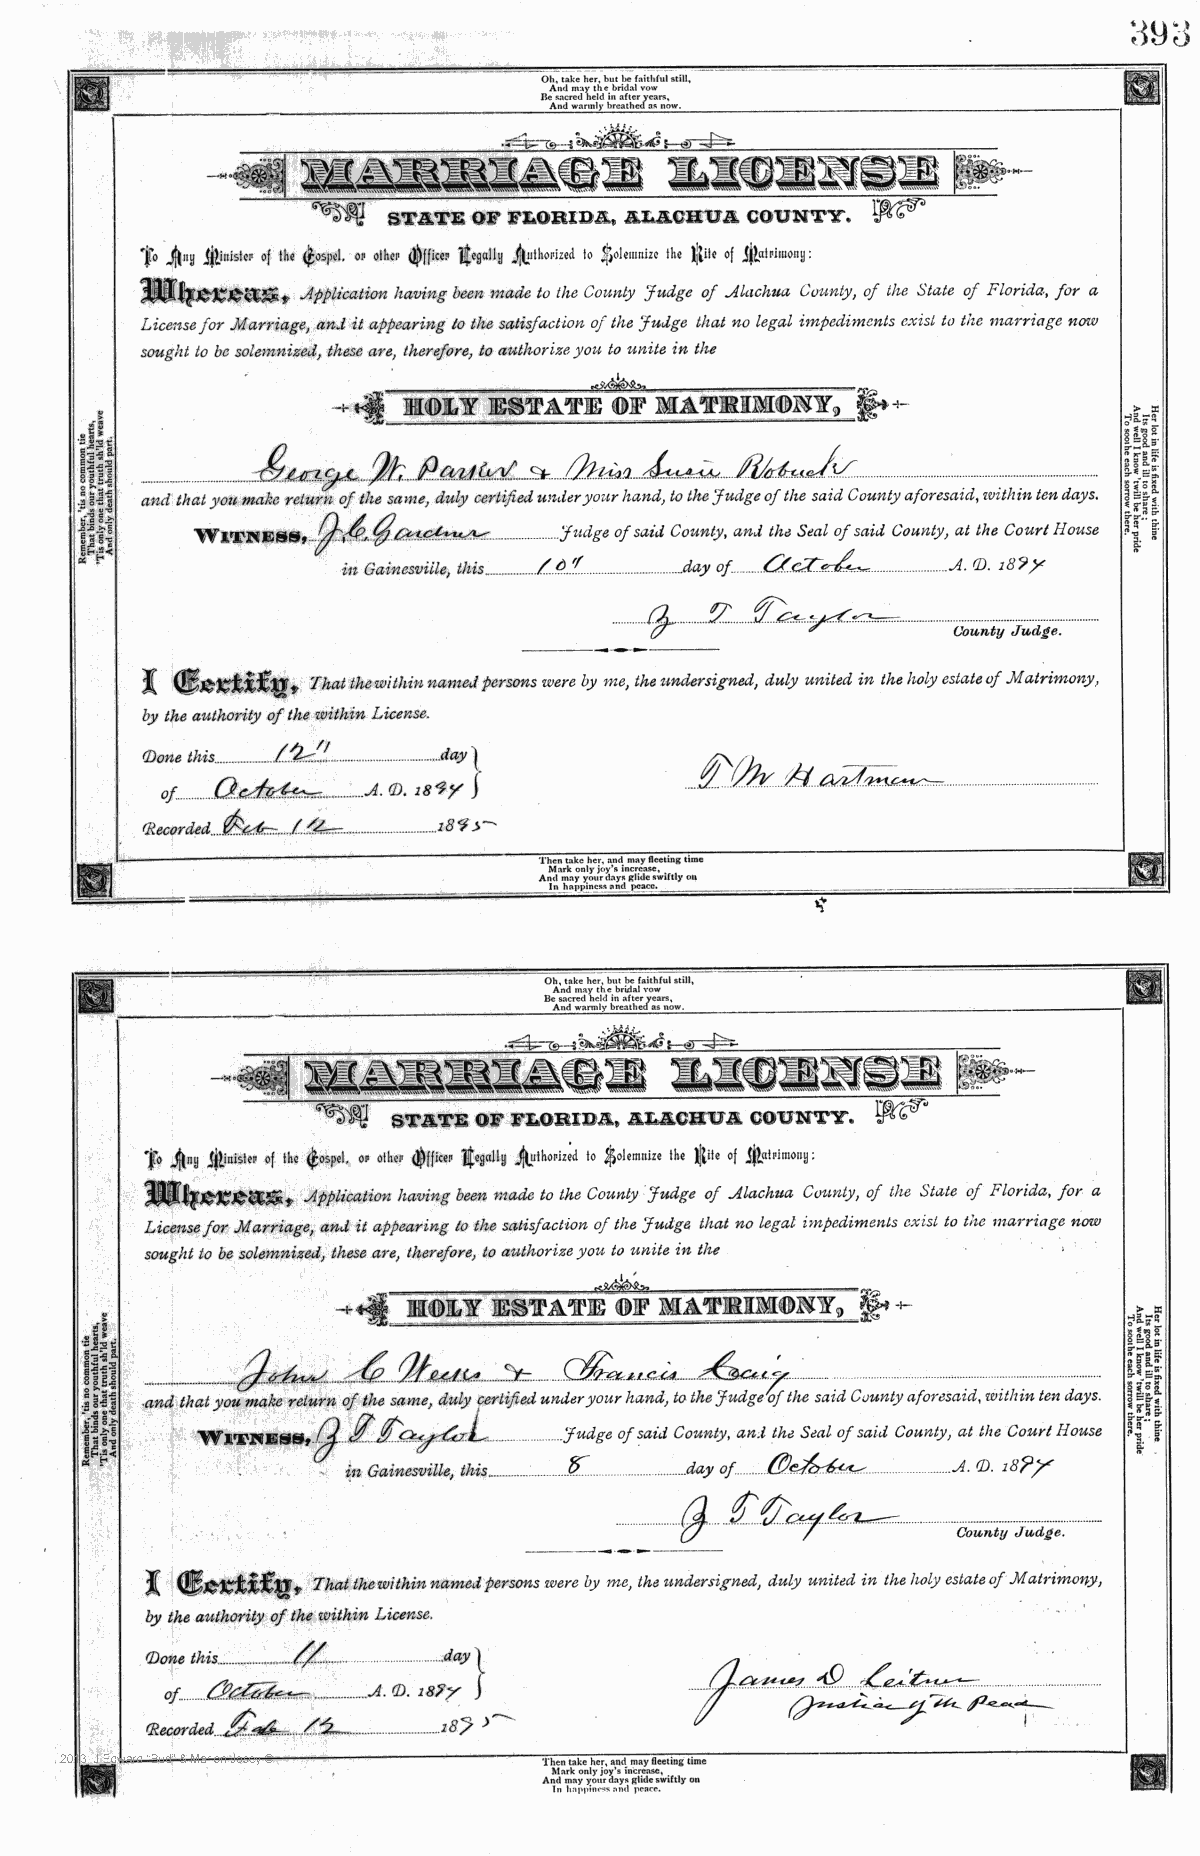 393
Oh, take her, but be faithful still,
And may the bridal vow
Be sacred held in after years,
And warmly breathed as now.
MARRIAGE LICENSE
STATE OF FLORIDA, ALACHUA COUNTY.
To Any Minister of the Gospel, or other Officer Legally Authorized to Solemnize the Rite of Matrimony:
Whereas, Application having been made to the County Judge of Alachua County, of the State of Florida, for a
License for Marriage, and it appearing to the satisfaction of the Judge that no legal impediments exist to the marriage now
sought to be solemnized, these are, therefore, to authorize you to unite in the
HOLY ESTATE OF MATRIMONY,
George W. Parker & Miss Susie Robuck
and that you make return of the same, duly certified under your hand, to the Judge of the said County aforesaid, within ten days.
WITNESS, J. C. Gardner Judge of said County, and the Seal of said County, at the Court House
in Gainesville, this 10" day of October A. D. 1894
Z T Taylor
County Judge.
I Certify, That the within named persons were by me, the undersigned, duly united in the holy estate of Matrimony,
by the authority of the within License.
Done this 12" day
of October A. D. 1894
T M Hartman
Recorded Feb 12 1895
Remember, 'tis no common tie
That binds our youthful hearts,
'Tis only one that truth sh'ld weave
And only death should part.
Her lot in life is fixed with thine
Its good and ill to share;
And well I know 'twill be her pride
To soothe each sorrow there.
Then take her, and may fleeting time
Mark only joy's increase,
And may your days glide swiftly on
In happiness and peace.
Oh, take her, but be faithful still,
And may the bridal vow
Be sacred held in after years,
And warmly breathed as now.
MARRIAGE LICENSE
STATE OF FLORIDA, ALACHUA COUNTY.
To Any Minister of the Gospel, or other Officer Legally Authorized to Solemnize the Rite of Matrimony:
Whereas, Application having been made to the County Judge of Alachua County, of the State of Florida, for a
License for Marriage, and it appearing to the satisfaction of the Judge that no legal impediments exist to the marriage now
sought to be solemnized, these are, therefore, to authorize you to unite in the
HOLY ESTATE OF MATRIMONY,
John C Weeks & Francis Craig
and that you make return of the same, duly certified under your hand, to the Judge of the said County aforesaid, within ten days.
WITNESS, Z T Taylor Judge of said County, and the Seal of said County, at the Court House
in Gainesville, this 8 day of October A. D. 1894
Z T Taylor
County Judge.
I Certify, That the within named persons were by me, the undersigned, duly united in the holy estate of Matrimony,
by the authority of the within License.
Done this 11 day
of October A. D. 1894
James D Leitner
Justice of the Peace
Recorded Feb 12 1895
Remember, 'tis no common tie
That binds our youthful hearts,
'Tis only one that truth sh'ld weave
And only death should part.
Her lot in life is fixed with thine
Its good and ill to share;
And well I know 'twill be her pride
To soothe each sorrow there.
Then take her, and may fleeting time
Mark only joy's increase,
And may your days glide swiftly on
In happiness and peace.